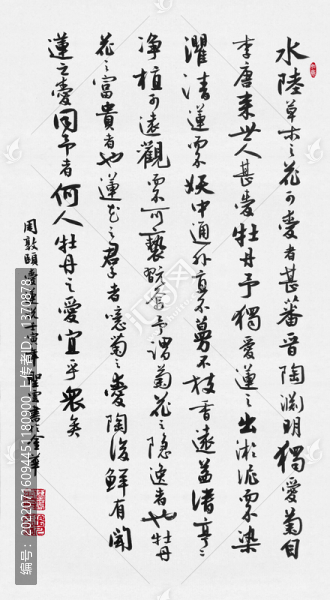 水陸草木之花可愛者甚蕃晉陶淵明獨愛菊自
李唐来世人甚愛牡丹予獨愛蓮之出淤泥而不染
濯清蓮而不妖中通外直不蔓不枝香遠益清亭亭
净植可遠觀而不可褻翫焉予謂菊花之隐逸者也牡丹
花之富貴者也蓮花之君子者噫菊之愛陶後鮮有聞
蓮之愛同予者何人牡丹之愛宜乎衆矣
周敦頤愛蓮
書於金華
编号：20220716094451180900 上传：1370878